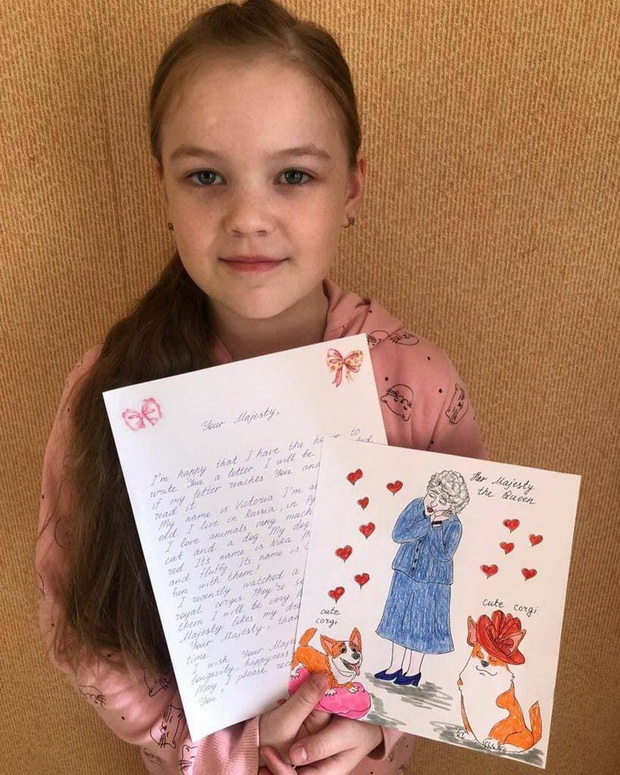 Your Majesty,
I'm happy that I have the to
write You a letter. I will be
if my letter reaches You and
read it.
My name is Victoria. I'm
old. I live in Russia, in
I love animals very much
cat and a dog. My dog
red. Its name is Nika.
and fluffy. Its name is
fun with them!
I recently watched a
royal corgis. They're
them. I will be very
Majesty likes my
Your Majesty,
time.
I wish Your
longevity, happiness
May, I please
You
Her Majesty
the Queen
cute
corgi
cute corgi